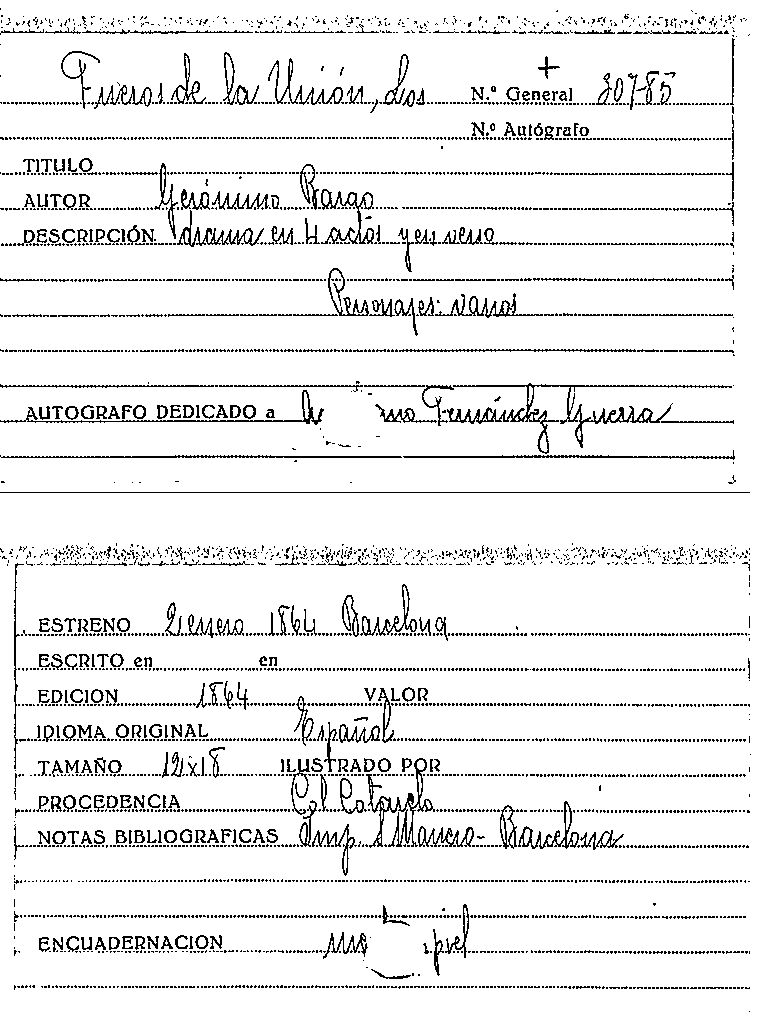 Fueros de la Unión, Los N.º General 307-85
N.º Autógrafo
TITULO
AUTOR Gerónimo Borao
DESCRIPCIÓN drama en 4 actos y en verso
Personajes: varios
AUTOGRAFO DEDICADO a Fernández Guerra
ESTRENO 2 enero 1864 Barcelona
ESCRITO en en
EDICION 1864 VALOR
IDIOMA ORIGINAL Español
TAMAÑO 12x18 ILUSTRADO POR
PROCEDENCIA Col Cotarelo
NOTAS BIBLIOGRAFICAS Imp. Barcelona
ENCUADERNACION piel